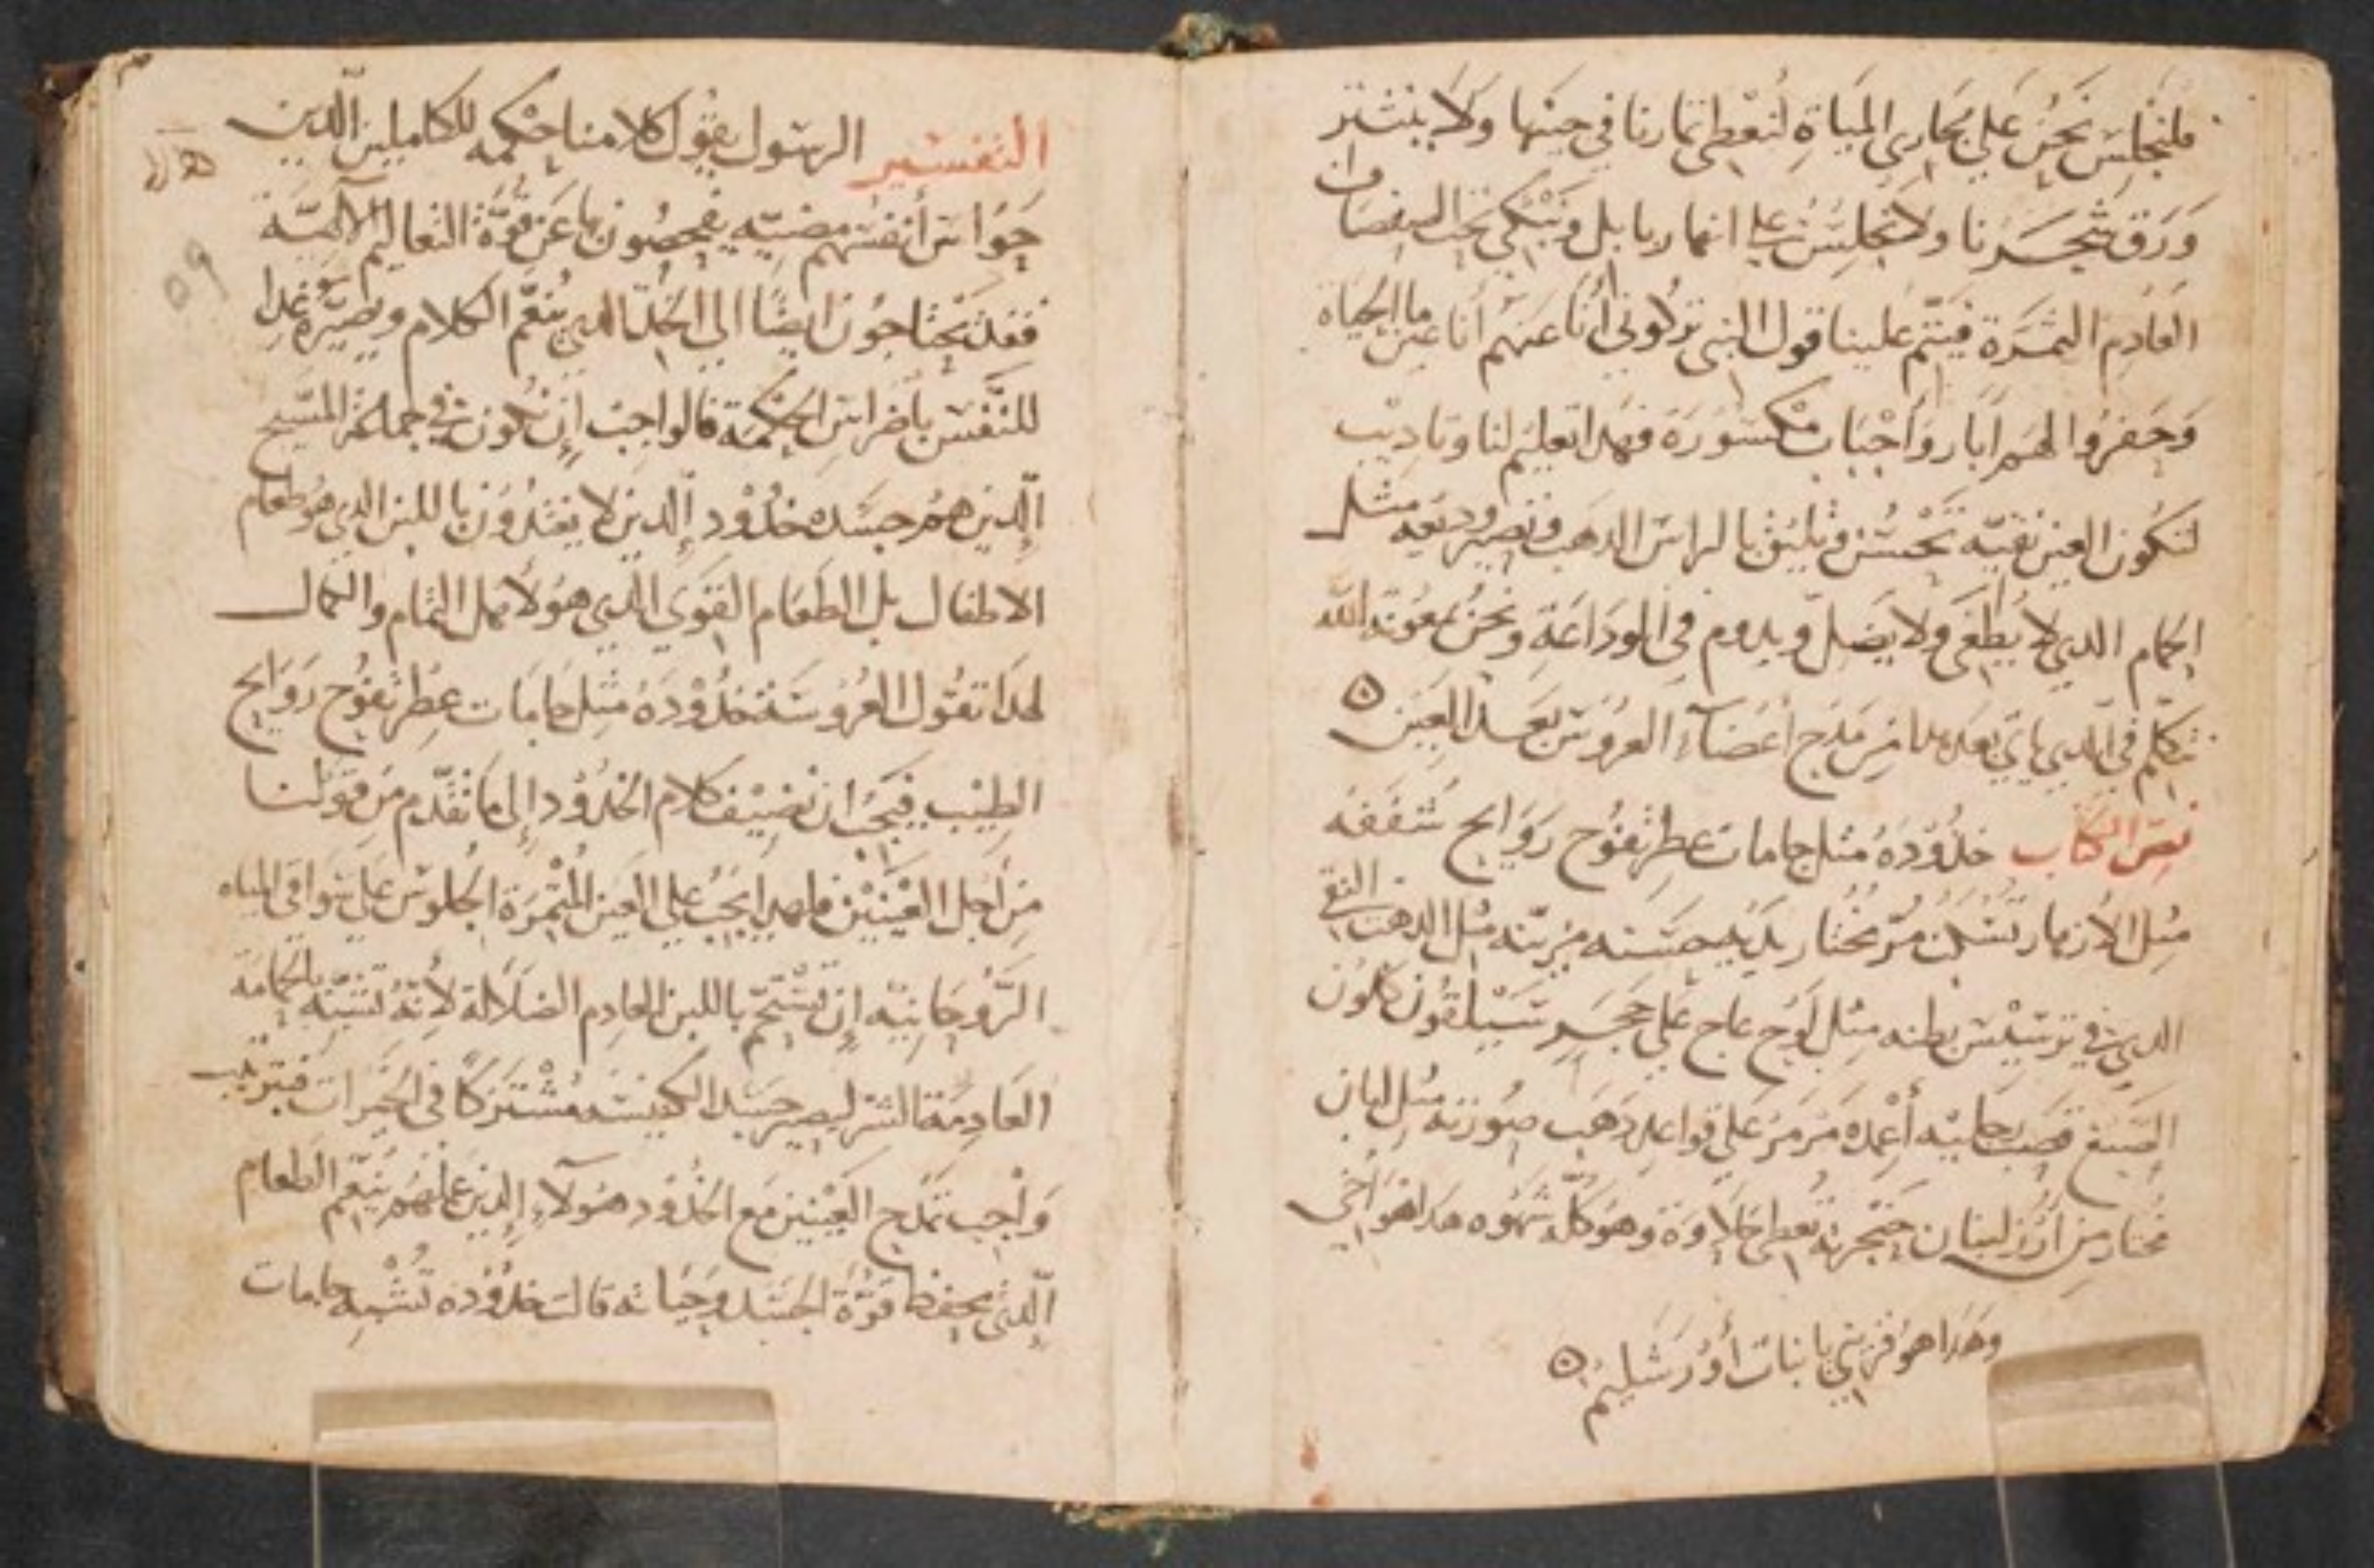 فلنجلس نحن على مجارى المياة لنعطى تمارنا في حينها ولا ينتثر
وَرَق شجرنا ولا نجلس على انهار بابل ونبكي تحت الصفصاف
العادم الثمرة فيتم علينا قول النبى تركوني أنا عنهم أنا عين ما الحياة
وَحفروا لهم ابار واجباب مكسورة فهدا تعليم لنا وتاديب
لتكون العين نقية تحسن وتليق بالراس الدهب وتصير وديعه مثل
الحمام الدي لا يطغى ولا يضل ويدوم في الوداعة ونحن بمعونة الله
نتكلم في الدي ياتي بعد هدا من مدح أعضآء العروس بعد العين ه
نص الكتاب خدوده مثل جامات عطر تفوح روايح شفقه
مثل الازهار تسكب مر مختار يديه حسنه مزينه مثل الدهب النقى
الدي في ترسيس بطنه مثل لوح عاج على حجر سيلقون كلون
الصبغ قصب رجليه أعمده مرمر على قواعد دهب صورته مثل لبان
مختار من أرز لبنان حنجرته تعطى حلاوة وهو كله شهوه هدا هو اخي
وهدا هو قريبي يا بنات أورشليم ه
التفسير الرسول يقول كلامنا حكمه للكاملين الدين
حواس أنفسهم مضيه يفحصون بها عن قوة التعاليم الآلهية
فقد يحتاجون ايضًا الى الخد الدي ينعم الكلام ويصيره غدا
للنفس باضراس الحكمة فالواجب ان تكون في جملة المسيح
الدين هم جسده خدود الدين لا يغتدون باللبن الدي هو طعام
الاطفال بل الطعام القوي الدي هو لاهل التمام والكمال
لهدا تقول العروسة خدوده مثل جامات عطر تفوح روايح
الطيب فيجب ان نضيف كلام الخدود إلى ما تقدم من قولنا
من أجل العينين فلهدا يجب على العين المثمرة الجلوس على سواقي المياه
الروحانية ان تستحم باللبن العادم الضلالة لانه تشبه بالحمامة
العادمة الشر ليصير جسد الكنيسه مشتركًا في الخيرات فبترتيب
وَاجب تمدح العينين مع الخدود هولآء الدين عملهم ينعم الطعام
الدي يحفظ قوة الجسد وحياته قالت خدوده تشبه جامات
٥٩